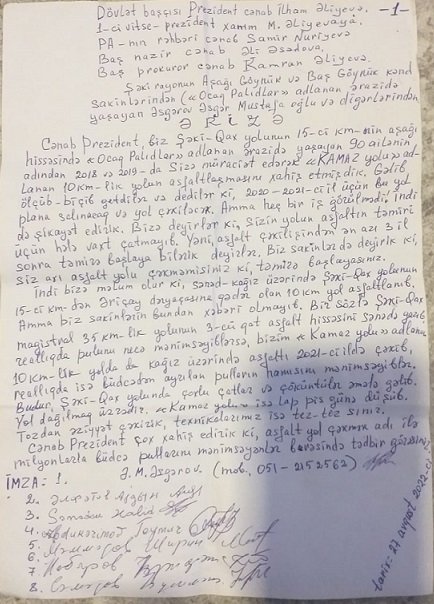 -1-
Dövlət başçısı Prezident cənab İlham Əliyevə,
1-ci vitse-prezident xanım M. Əliyevaya,
PA-nın rəhbəri cənab Samir Nuriyevə
Baş nazir cənab Əli Əsədova,
Baş prokuror cənab Kamran Əliyevə
Şəki rayonun Aşağı Göynük və Baş Göynük kənd
sakinlərindən («Ocaq Palıdlar» adlanan ərazidə
yaşayan Əsgərov Əsgər Mustafa oğlu və digərlərindən
Ə R İ Z Ə
Cənab Prezident, biz Şəki-Qax yolunun 15-ci km-nin aşağı
hissəsində «Ocaq Palıdlar» adlanan ərazidə yaşayan 90 ailənin
adından 2018 və 2019-da Sizə müraciət edərək «KAMAZ yolu» ad-
lanan 10 km-lik yolun asfaltlaşmasını xahiş etmişdik. Gəlib
ölçüb-biçib getdilər və dedilər ki, 2020-2021-ci il üçün bu yol
plana salınacaq və yol çəkiləcək. Amma heç bir iş görülmədi. İndi
də şikayət edirik. Bizə deyirlər ki, Sizin yolun asfaltın təmiri
üçün hələ vaxt çatmayıb. Yəni, asfalt çəkilişindən ən azı 3 il
sonra təmirə başlaya bilərik deyirlər. Biz sakinlər də deyirik ki,
siz axı asfalt yolu çəkməmisiniz ki, təmirə başlayasınız.
İndi bizə məlum olur ki, sənəd-kağız üzərində Şəki-Qax yolunun
15-ci km-dən Əriçay dayağasına qədər olan 10 km yol asfaltlanıb.
Amma biz sakinlərin bundan xəbəri olmayıb. Bir sözlə Şəki-Qax
magistral 35 km-lik yolunun 3-cü qat asfalt hissəsini sənəddə yazıb
reallıqda pulunu necə mənimsəyiblərsə, bizim «Kamaz yolu» adlanan
10 km-lik yolda da kağız üzərində asfaltı 2021-ci ildə çəkib,
reallıqda isə büdcədən ayrılan pulların hamısını mənimsəyiblər.
Budur, Şəki-Qax yolunda çoxlu çatlar və çöküntülər əmələ gəlib.
Yol dağılmaq üzrədir. «Kamaz yolu» isə lap pis günə düşüb.
Tozdan əziyyət çəkirik, texnikalarımız isə tez-tez sınır.
Cənab Prezident çox xahiş edirik ki, asfalt yol çəkmək adı ilə
milyonlarla büdcə pullarını mənimsəyənlər barəsində tədbir görəsiniz
İMZA: 1. Ə. M. Əsgərov. (mob. 051-2152562)
2.
3.
4.
5.
6.
7.
8.
tarix: 27 avqust 2022-ci il